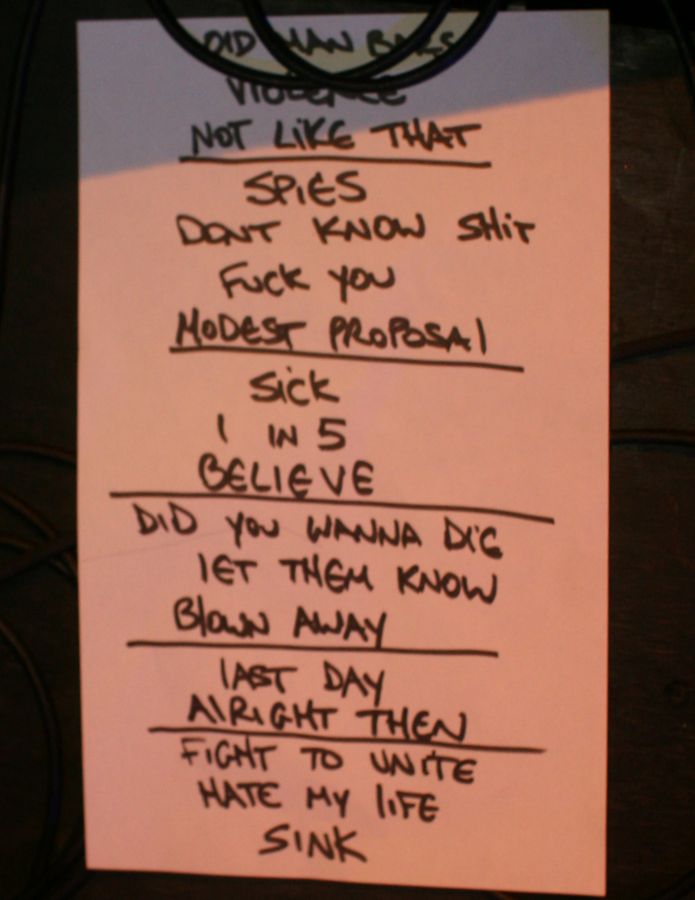 OLD MAN BARS
VIOLENCE
NOT LIKE THAT
SPIES
DONT KNOW SHIT
FUCK YOU
MODEST PROPOSAL
SICK
1 IN 5
BELIEVE
DID YOU WANNA DIE
LET THEM KNOW
BLOWN AWAY
LAST DAY
ALRIGHT THEN
FIGHT TO UNITE
HATE MY LIFE
SINK